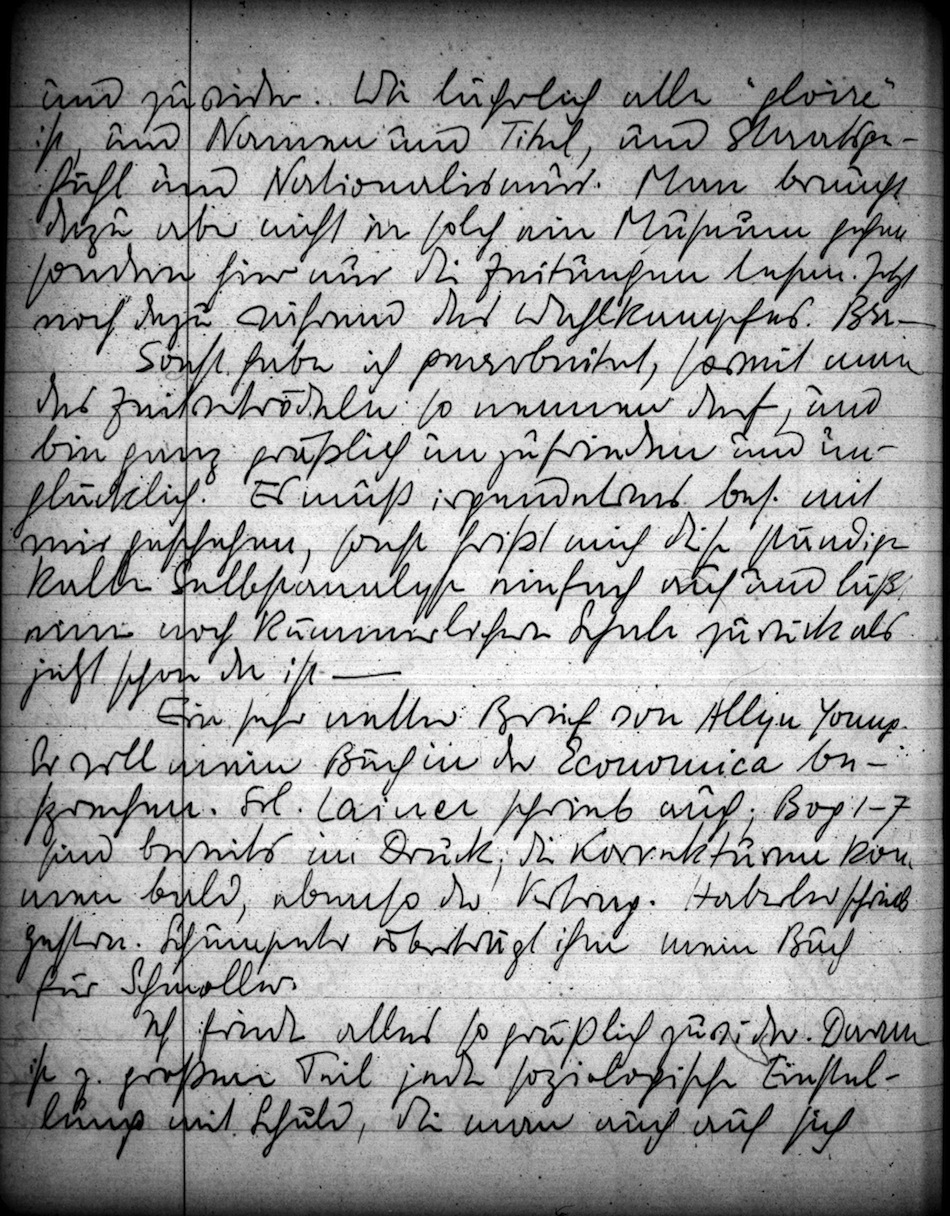 und zuwider. Wie lächerlich alle "gloire"
ist, und Namen und Titel, und Staatsge-
fühl und Nationalismus. Man braucht
dazu aber nicht in solch ein Museum gehen
sondern hier nur die Zeitungen lesen. Jetzt
noch dazu während des Wahlkampfes.
Sonst habe ich gearbeitet, soweit man
das Zeitvertrödeln so nennen darf, und
bin ganz gräßlich unzufrieden und un-
glücklich. Es muß irgendetwas bes. mit
mir geschehen, sonst frißt mich diese ständige
kalte Selbstanalyse einfach auf und läßt
eine noch kümmerlichere Schale zurück als
jetzt schon da ist —
Ein sehr netter Brief von Allyn Young.
Er will mein Buch in der Economica be-
sprechen. Frl. Lainer schrieb auch; Bog 1-7
sind bereits im Druck, die Korrekturen kom
men bald, ebenso der Vertrag. Haberler schrieb
gestern. Schumpeter überträgt ihm mein Buch
für Schmoller.
Ich finde alles so gräßlich zuwider. Daran
ist z. großen Teil jede soziologische Einstel-
lung mit Schuld, die man auch auf sich